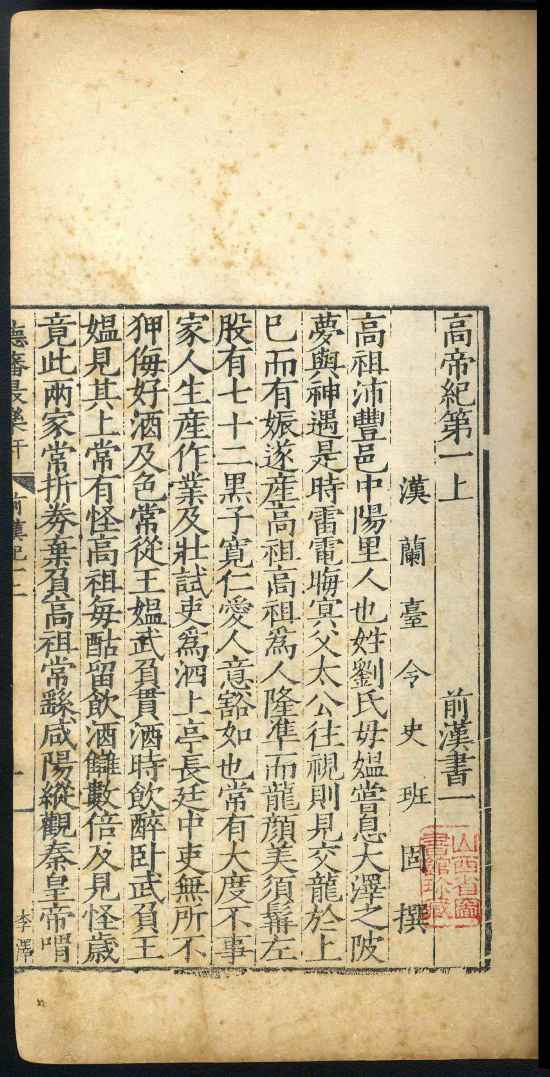 高帝紀第一上 前漢書一
漢蘭臺令史班固撰
高祖沛豐邑中陽里人也姓劉氏母媪嘗息大澤之陂
夢與神遇是時雷電晦冥父太公往視則見交龍於上
已而有娠遂產高祖高祖為人隆準而龍顏美須髯左
股有七十二黑子寬仁愛人意豁如也常有大度不事
家人生產作業及壯試吏為泗上亭長廷中吏無所不
狎侮好酒及色常從王媪武負貰酒時飲醉卧武負王
媪見其上常有怪高祖每酤留飲酒讎數倍及見怪歲
竟此兩家常折券棄負高祖常繇咸陽縱觀秦皇帝喟
德藩最樂軒
前漢紀一
一
李澤
山西省圖書館珍藏